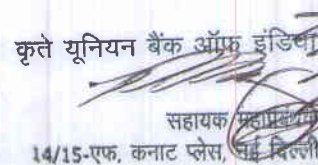 कृते यूनियन बैंक ऑफ़ इंडिया
सहायक महाप्रबंधक
14/15-एफ, कनाट प्लेस, नई दिल्ली